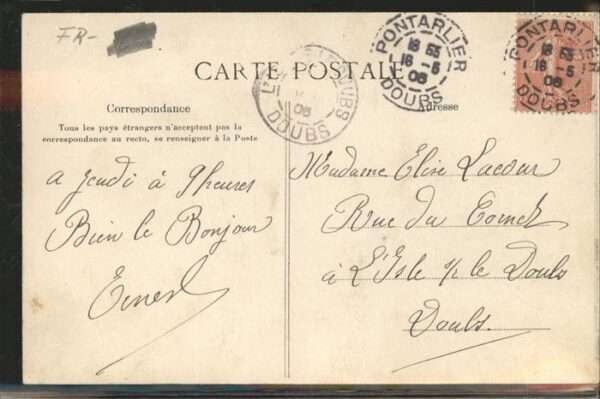 FR-
CARTE POSTALE
PONTARLIER
18 55
16 - 5
06
DOUBS
PONTARLIER
18 55
16 - 5
06
DOUBS
DOUBS
06
DOUBS
Correspondance
Adresse
Tous les pays étrangers n'acceptent pas la
correspondance au recto, se renseigner à la Poste
a jeudi à 9 heures
Bien le Bonjour
Ernest
Madame Elise Lacour
Rue du
à L'Isle s/ le Doubs
Doubs.